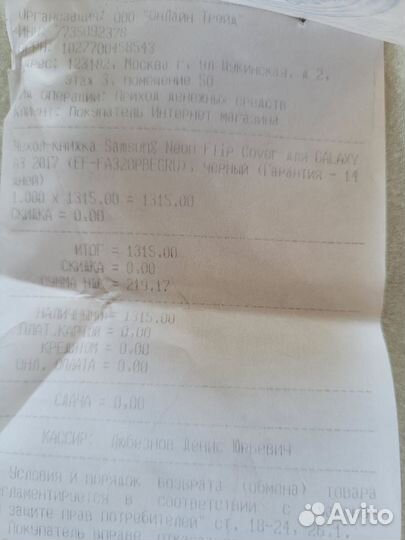 Организация: ООО "ОнЛайн Трейд"
ИНН: 7735092378
ОГРН: 1027700458543
Адрес: 123182, Москва г, ул Щукинская, д 2,
этаж 3, помещение 50
Вид операции: Приход денежных средств
Клиент: Покупатель Интернет магазина
Чехол-книжка Samsung Neon Flip Cover для GALAXY
A3 2017 (EF-FA320PBEGRU), черный (Гарантия - 14
дней)
1.000 x 1315.00 = 1315.00
СКИДКА = 0.00
ИТОГ = 1315.00
СКИДКА = 0.00
СУММА НДС = 219.17
НАЛИЧНЫМИ = 1315.00
ПЛАТ.КАРТОЙ = 0.00
КРЕДИТОМ = 0.00
ОНЛ.ОПЛАТА = 0.00
СДАЧА = 0.00
КАССИР: Любезнов Денис Юрьевич
Условия и порядок возврата (обмена) товара
регламентируется в соответствии с
защите прав потребителей" ст. 18-24, 26.1.
Покупатель вправе
Avito